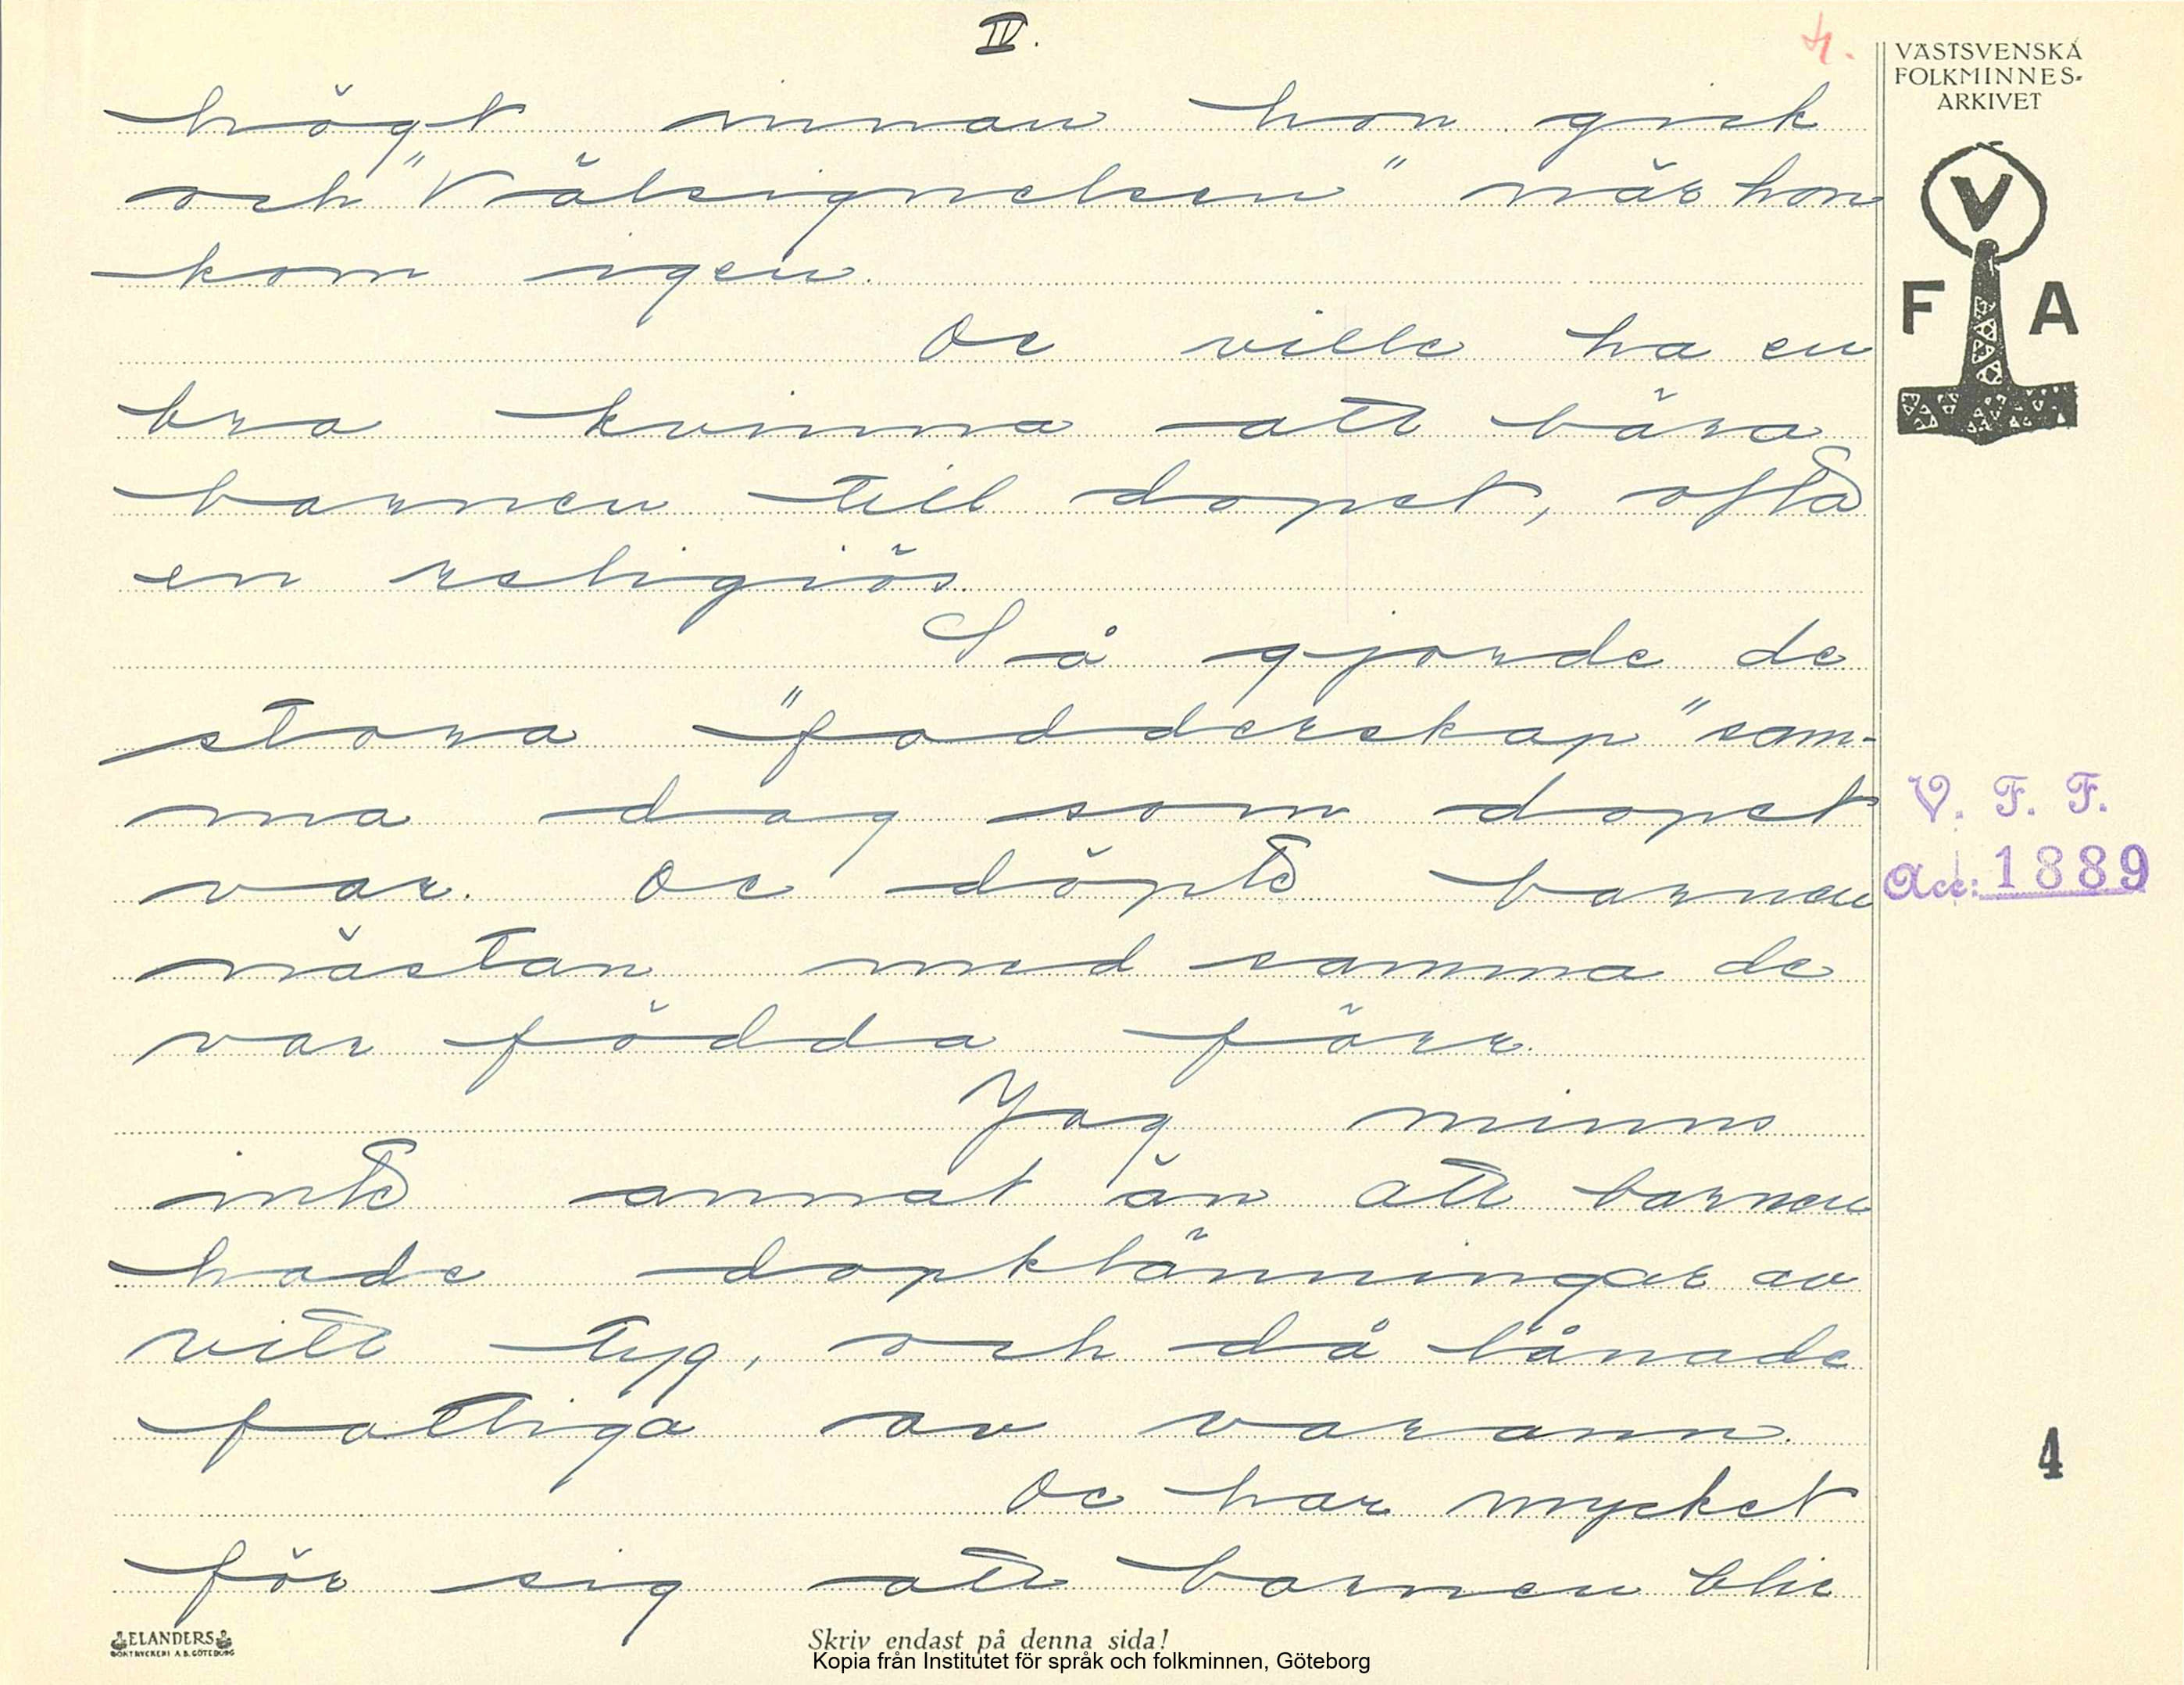 IV.
4.
VÄSTSVENSKA
FOLKMINNES-
ARKIVET
V
F A
högt innan hon gick
och "Välsignelsen" när hon
kom igen.
De ville ha en
bra kvinna att bära
barnen till dopet, ofta
en religiös.
Så gjorde de
stora "fadderskap" sam-
ma dag som dopet
var. De döpte barnen
nästan med samma de
var födda förr.
Jag minns
inte annat än att barnen
hade dopklänningar av
vitt tyg, och då lånade
fattiga av varann.
De har mycket
för sig att barnen blir
V. F. F.
Acc: 1889
4
ELANDERS
BOKTRYCKERI A.B. GÖTEBORG
Skriv endast på denna sida!
Kopia från Institutet för språk och folkminnen, Göteborg